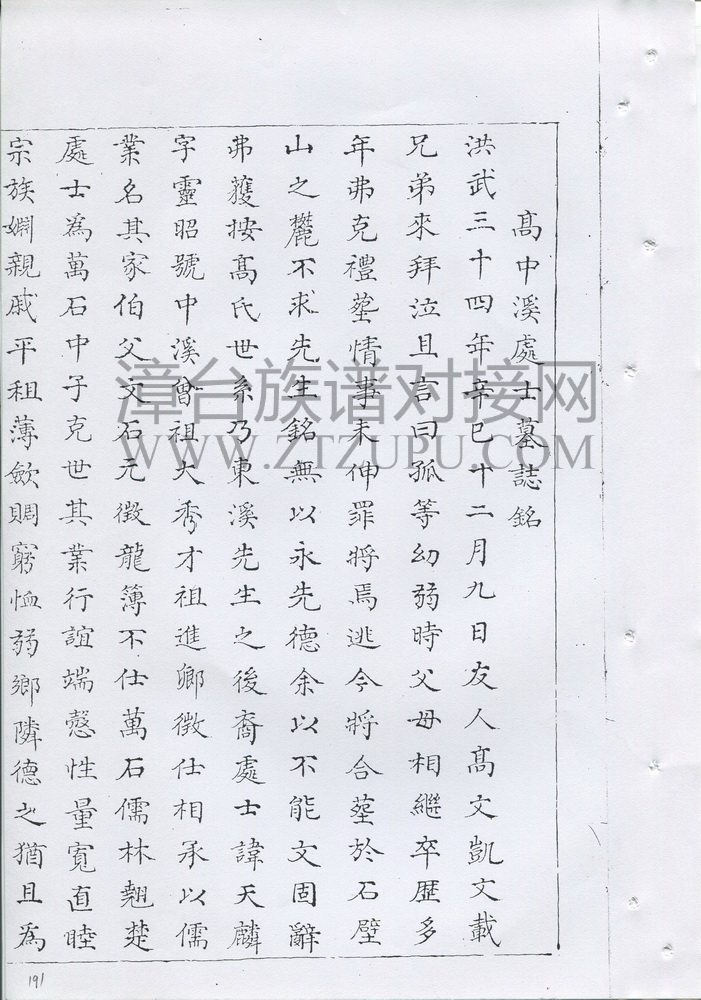 高中溪處士墓誌銘
洪武三十四年辛巳十二月九日友人高文凱文載
兄弟來拜泣且言曰孤等幼弱時父母相繼卒歷多
年弗克禮塟情事未伸罪將焉逃今將合塟於石壁
山之麓不求先生銘無以永先德余以不能文固辭
弗獲按高氏世系乃東溪先生之後裔處士諱天麟
字靈昭號中溪曾祖大秀才祖進卿徴仕相承以儒
業名其家伯父文石元徴龍簿不仕萬石儒林翹楚
處士為萬石中子克世其業行誼端愨性量寬直睦
宗族婣親戚平租薄歛賙窮恤弱鄉隣德之猶且為
漳台族谱对接网
WWW.ZTZUPU.COM
191